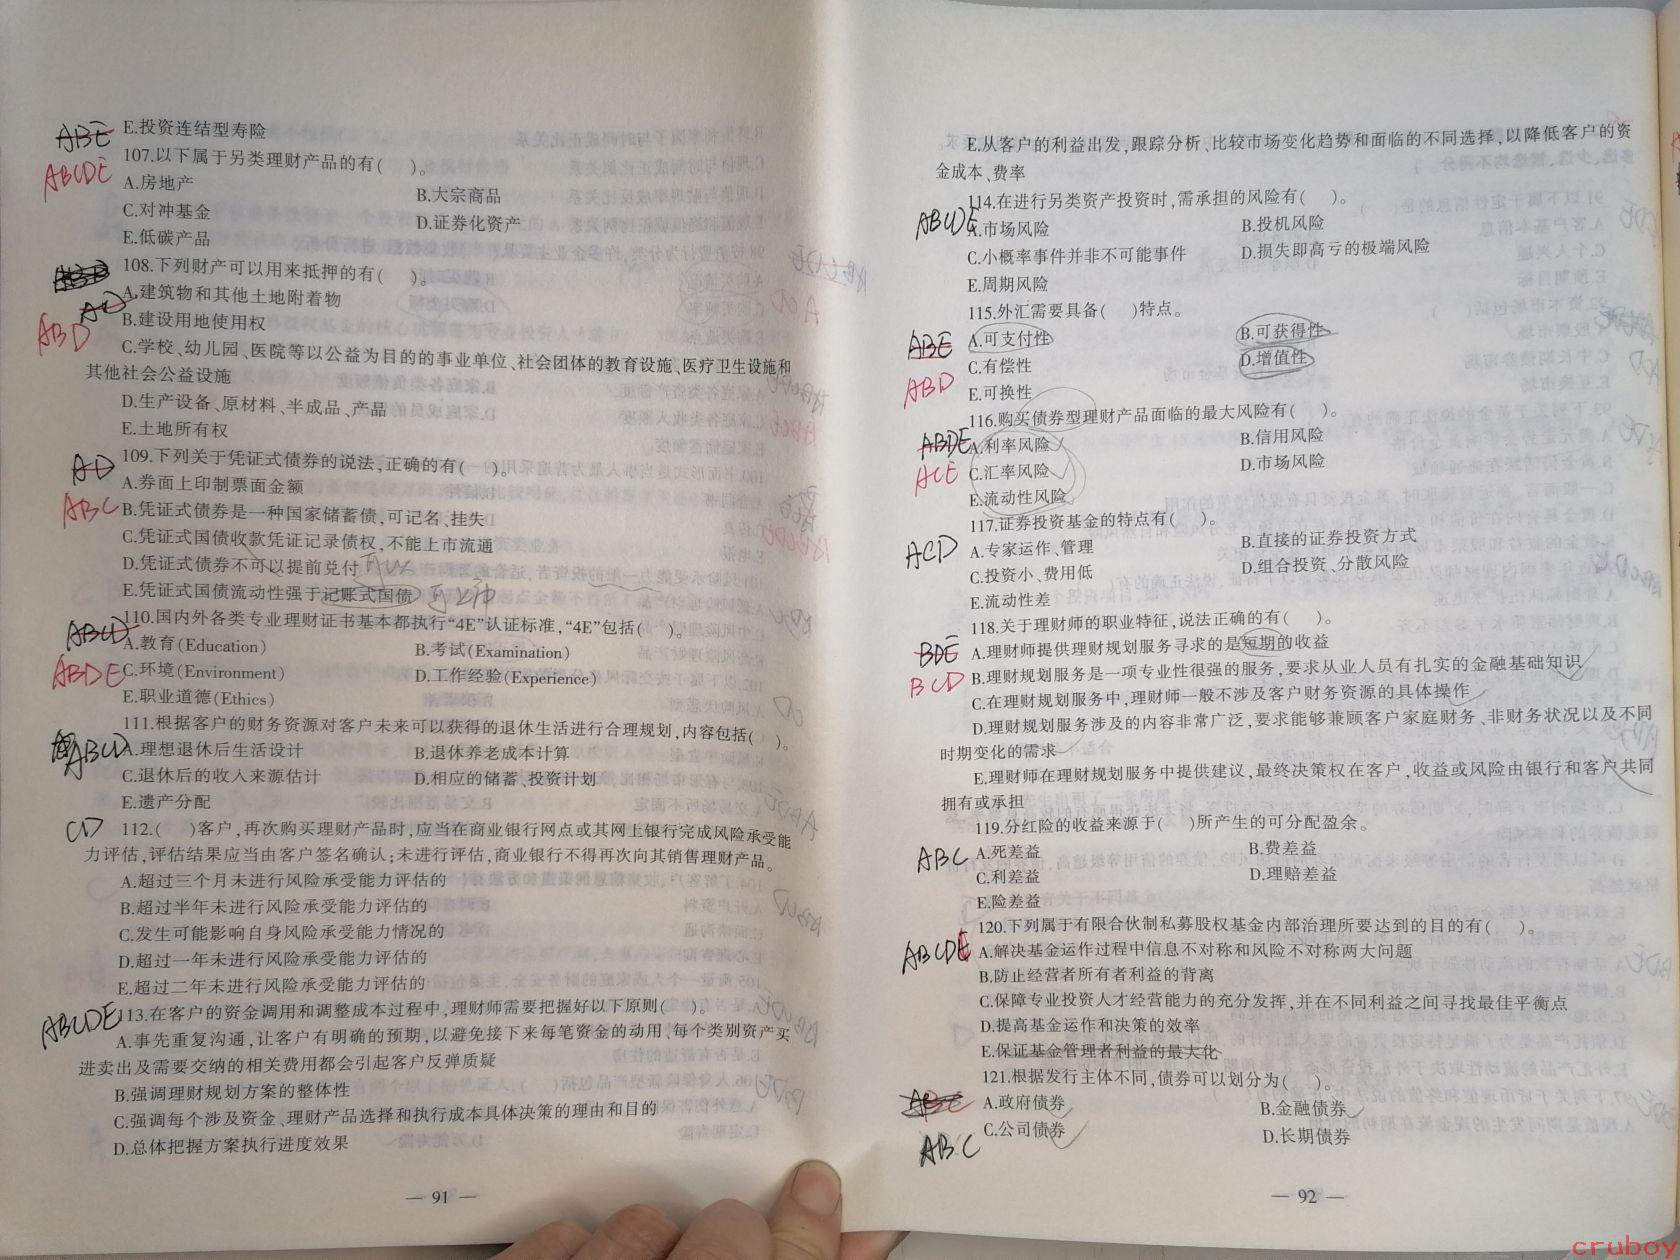 ABE E.投资连结型寿险
107.以下属于另类理财产品的有(    )。
ABCDE A.房地产 B.大宗商品
C.对冲基金 D.证券化资产
E.低碳产品
108.下列财产可以用来抵押的有(    )。
A.建筑物和其他土地附着物
AD
ABD B.建设用地使用权
C.学校、幼儿园、医院等以公益为目的的事业单位、社会团体的教育设施、医疗卫生设施和
其他社会公益设施
D.生产设备、原材料、半成品、产品
E.土地所有权
AD 109.下列关于凭证式债券的说法,正确的有(    )。
A.券面上印制票面金额
ABC B.凭证式债券是一种国家储蓄债,可记名、挂失
C.凭证式国债收款凭证记录债权,不能上市流通
D.凭证式债券不可以提前兑付 可以
E.凭证式国债流动性强于记账式国债
110.国内外各类专业理财证书基本都执行“4E”认证标准,“4E”包括(    )。
ABCD A.教育(Education) B.考试(Examination)
ABDE C.环境(Environment) D.工作经验(Experience)
E.职业道德(Ethics)
111.根据客户的财务资源对客户未来可以获得的退休生活进行合理规划,内容包括(    )。
ABCD A.理想退休后生活设计 B.退休养老成本计算
C.退休后的收入来源估计 D.相应的储蓄、投资计划
E.遗产分配
CD 112.(    )客户,再次购买理财产品时,应当在商业银行网点或其网上银行完成风险承受能
力评估,评估结果应当由客户签名确认;未进行评估,商业银行不得再次向其销售理财产品。
A.超过三个月未进行风险承受能力评估的
B.超过半年未进行风险承受能力评估的
C.发生可能影响自身风险承受能力情况的
D.超过一年未进行风险承受能力评估的
E.超过二年未进行风险承受能力评估的
ABCDE 113.在客户的资金调用和调整成本过程中,理财师需要把握好以下原则(    )。
A.事先重复沟通,让客户有明确的预期,以避免接下来每笔资金的动用、每个类别资产买
进卖出及需要交纳的相关费用都会引起客户反弹质疑
B.强调理财规划方案的整体性
C.强调每个涉及资金、理财产品选择和执行成本具体决策的理由和目的
D.总体把握方案执行进度效果
— 91 —
E.从客户的利益出发,跟踪分析、比较市场变化趋势和面临的不同选择,以降低客户的资
金成本、费率
114.在进行另类资产投资时,需承担的风险有(    )。
ABCDE A.市场风险 B.投机风险
C.小概率事件并非不可能事件 D.损失即高亏的极端风险
E.周期风险
115.外汇需要具备(    )特点。
ABE A.可支付性 B.可获得性
C.有偿性 D.增值性
ABD E.可换性
116.购买债券型理财产品面临的最大风险有(    )。
ABDE A.利率风险 B.信用风险
ACE C.汇率风险 D.市场风险
E.流动性风险
117.证券投资基金的特点有(    )。
ACD A.专家运作、管理 B.直接的证券投资方式
C.投资小、费用低 D.组合投资、分散风险
E.流动性差
118.关于理财师的职业特征,说法正确的有(    )。
BDE A.理财师提供理财规划服务寻求的是短期的收益
BCD B.理财规划服务是一项专业性很强的服务,要求从业人员有扎实的金融基础知识
C.在理财规划服务中,理财师一般不涉及客户财务资源的具体操作
D.理财规划服务涉及的内容非常广泛,要求能够兼顾客户家庭财务、非财务状况以及不同
时期变化的需求
E.理财师在理财规划服务中提供建议、最终决策权在客户,收益或风险由银行和客户共同
拥有或承担
119.分红险的收益来源于(    )所产生的可分配盈余。
ABC A.死差益 B.费差益
C.利差益 D.理赔差益
E.险差益
120.下列属于有限合伙制私募股权基金内部治理所要达到的目的有(    )。
ABCDE A.解决基金运作过程中信息不对称和风险不对称两大问题
B.防止经营者所有者利益的背离
C.保障专业投资人才经营能力的充分发挥,并在不同利益之间寻找最佳平衡点
D.提高基金运作和决策的效率
E.保证基金管理者利益的最大化
121.根据发行主体不同,债券可以划分为(    )。
A.政府债券 B.金融债券
ABC C.公司债券 D.长期债券
— 92 —
cruboy